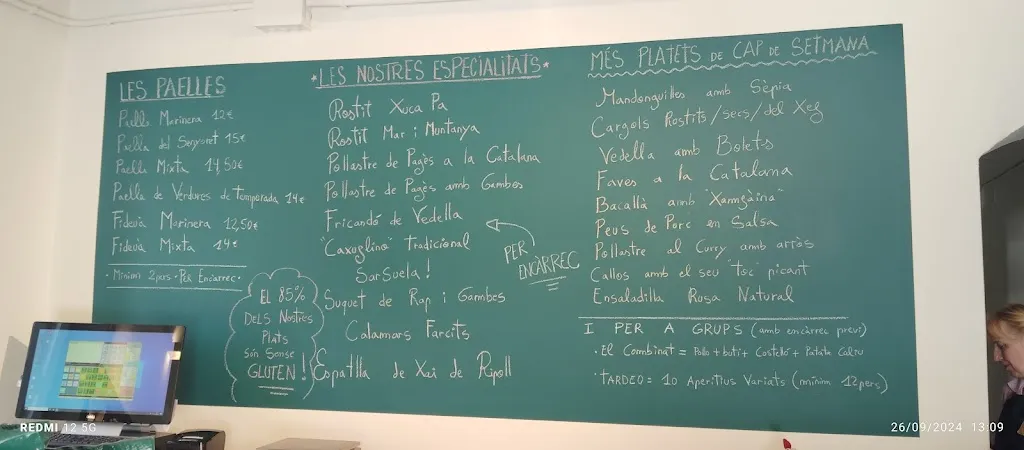 LES PAELLES
Paella Marinera 12€
Paella del Senyoret 15€
Paella Mixta 14,50€
Paella de Verdures de Temporada 14€
Fideuà Marinera 12,50€
Fideuà Mixta 14€
· Mínim 2pers · Per Encàrrec ·
EL 85%
DELS Nostres
Plats
Són Sense
GLUTEN!
*LES NOSTRES ESPECIALITATS*
Rostit Xuca Pa
Rostit Mar i Muntanya
Pollastre de Pagès a la Catalana
Pollastre de Pagès amb Gambes
Fricandó de Vedella
"Caxuglino" Tradicional
SarSuela!
Suquet de Rap i Gambes
Calamars Farcits
Espatlla de Xai de Ripoll
PER
ENCÀRREC
MÉS PLATETS DE CAP DE SETMANA
Mandonguilles amb Sèpia
Cargols Rostits/secs/del Xef
Vedella amb Bolets
Faves a la Catalana
Bacallà amb "Xamfaina"
Peus de Porc en Salsa
Pollastre al Curry amb arròs
Callos amb el seu "toc" picant
Ensaladilla Rusa Natural
I PER A GRUPS (amb encàrrec previ)
· El Combinat = Pollo + buti + Costelló + Patata Caliu
· TARDEO = 10 Aperitius Variats (mínim 12pers)
REDMI 12 5G
26/09/2024 13:09